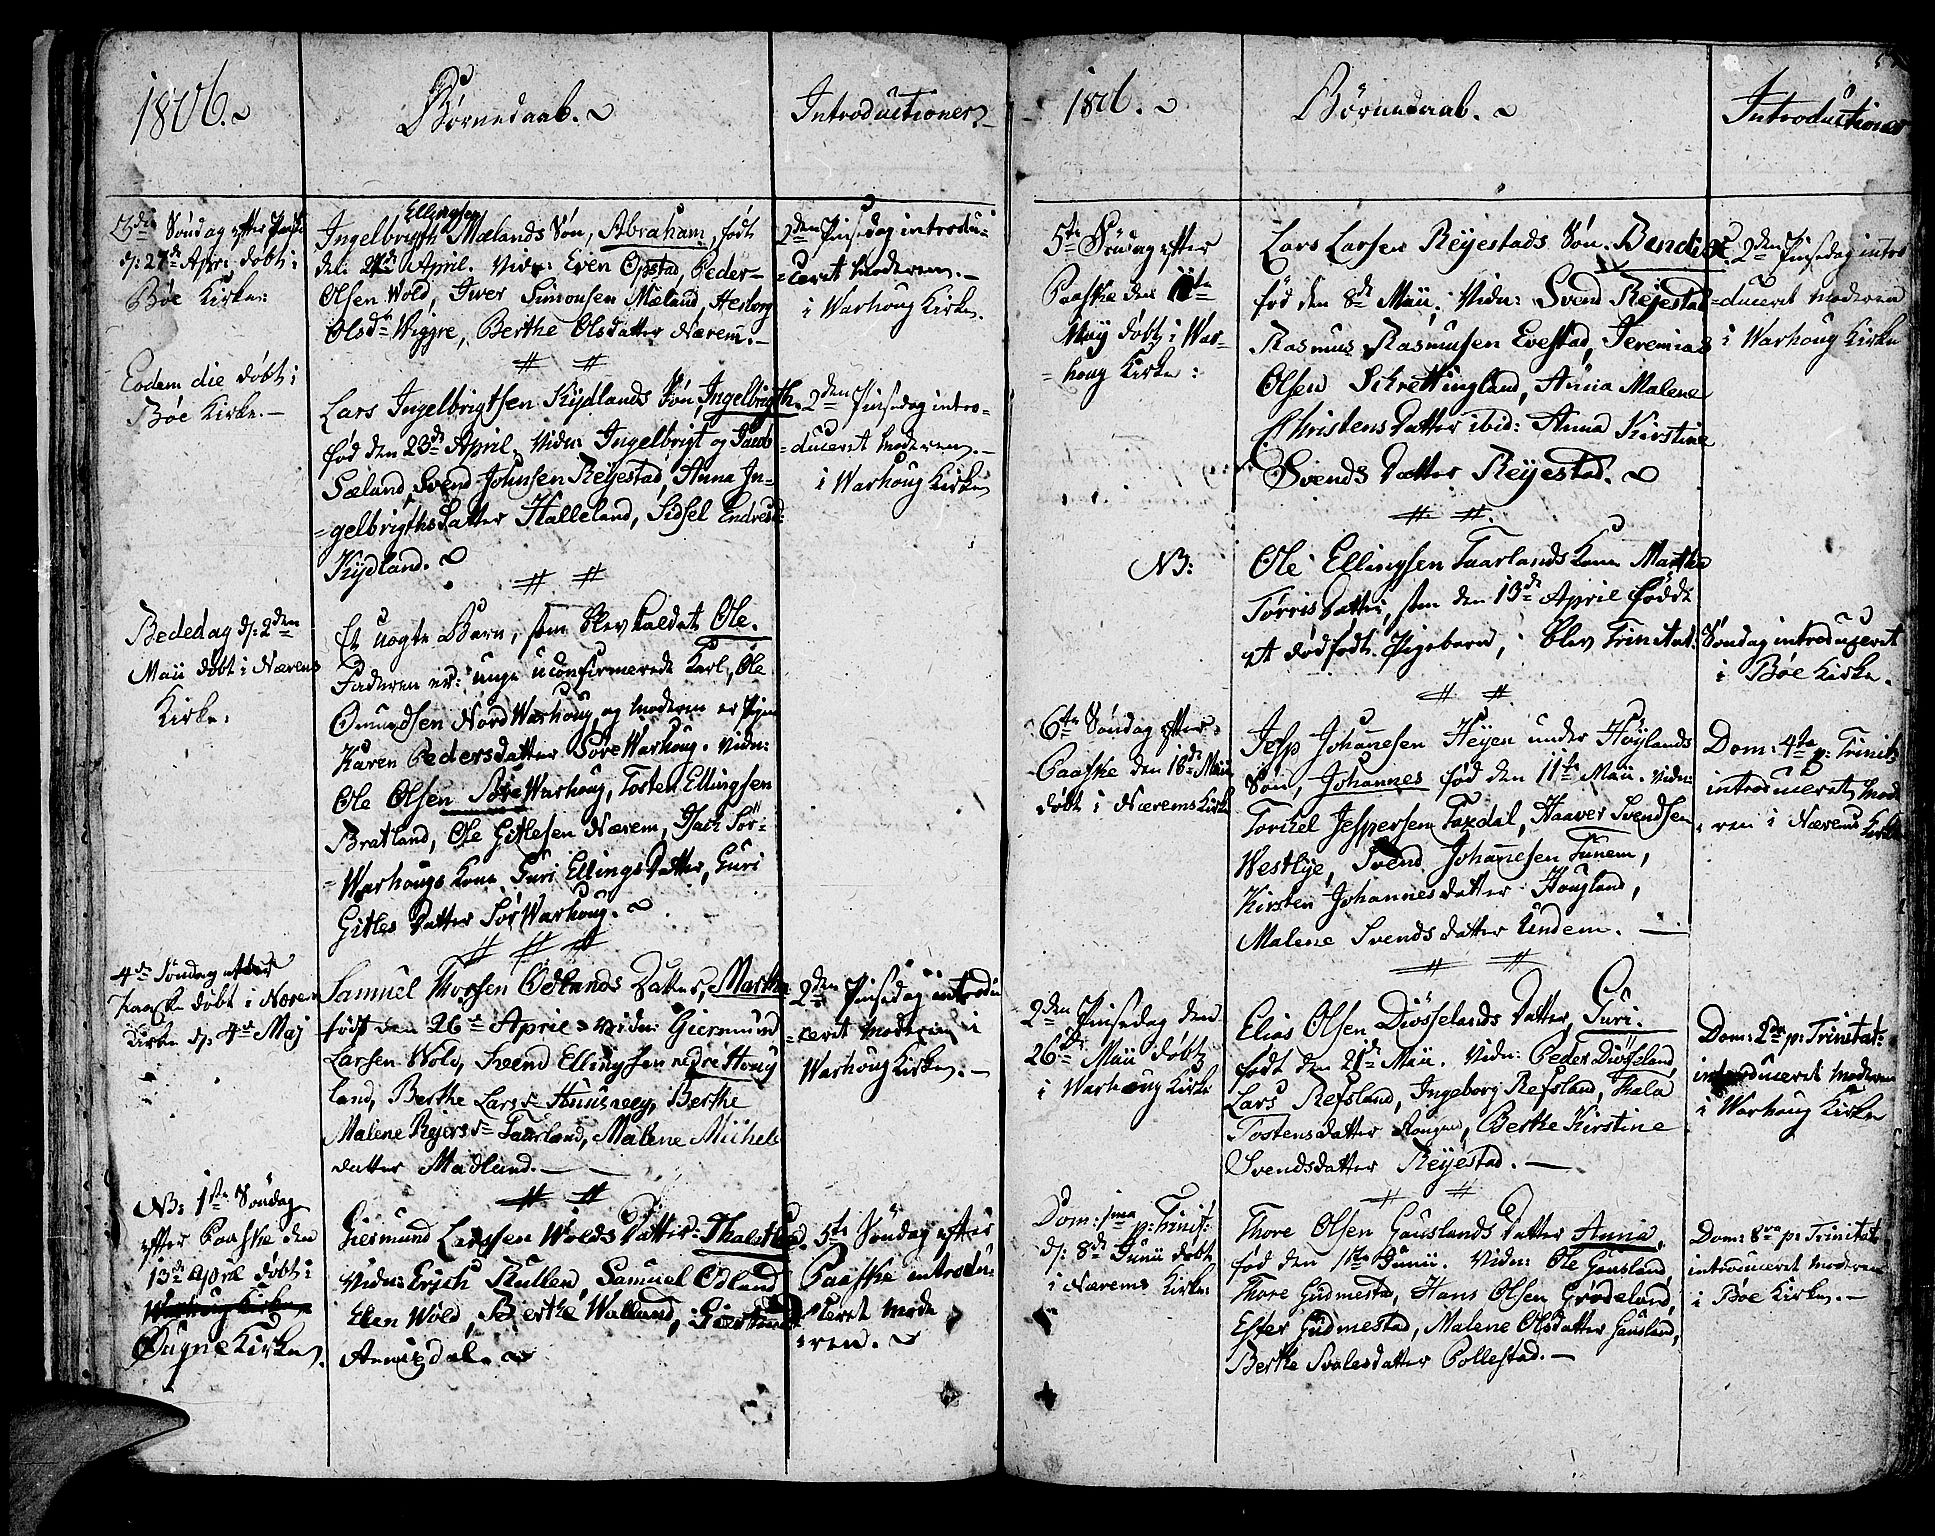 1806.
Børnedaab.
Introductioner
3die Søndag efter Paaske
d: 27de April døbt i
Bøe Kirke:
Ellingsen
Ingelbrigth Mælands Søn, Abraham, født
del: 24de April. Vidn: Even Opstad, Peder
Olsen Wold, Iver Simonsen Mæland, Hesborg
Olsdr Vigre, Berthe Olsdatter Nærem.
2den Pinsedag introdu-
=ceret Moderen.
i Warhoug Kirke.
Eodem die døbt i
Bøe Kirke.
Lars Ingelbrigtsen Kydlands Søn, Ingelbrigth.
fød den 23de April. Vidn: Ingelbrigt og Jacob
Sæland, Svend Johnsen Reyestad, Anna In-
=gelbrigthsdatter Halleland, Sidsel Endresd:
Kydland.
2den Pinsedag intro-
=duceret Moderen.
i Warhoug Kirke
Bededag d: 2den
Maii døbt i Nærems
Kirke:
Et uægte Barn, som blev kaldet Ole.
Faderen er: unge uconfirmerede Karl, Ole
Omundsen Nord Warhoug, og Moderen er Pigen
Karen Pedersdatter Søre Warhoug. Vidn:
Ole Olsen Søre Warhoug, Tosten Ellingsen
Bratland, Ole Gitlesen Nærem, Isach Sør-
=Warhougs Kone Guri Ellingsdatter, Guri
Gitles datter Sør Warhoug.
4de Søndag efter
Paaske døbt i Nærem
Kirke d: 4de Maj
Samuel Thorsen Ødlands Datter, Martha
født den 26de April. Vidn: Giermund
Larsen Wold, Svend Ellingsen nedre Houg
land, Berthe Larsdr Huusveeg, Berthe
Malene Rejersdr Taarland, Malene Michels
datter Madland.
2den Pinsedag introdu
=ceret Moderen i
Warhoug Kirke.
NB: 1ste Søndag
efter Paaske den
13de April døbt i
Warhoug Kirke
Ougne Kirke.
Giermund Larssen Wolds Datter: Thalethe.
Vidn: Erich Kullen, Samuel Ødland
Elen Wold, Berthe Walland, Giertrud
Aniegdal.
5te Søndag efter
Paaske introdu-
=ceret Mode
=ren.
1806.
Børnedaab.
Introductioner
5te Søndag efter
Paaske den 11te
Maij døbt i War-
=houg Kirke:
Lars Larsen Reyestads Søn. Bendix.
fød den 8de Maii. Vidn: Svend Reyestad
Rasmus Rasmusen Evestad, Jeremias
Olsen Skrettingland, Anna Malene
Christensdatter ibid: Anna Kirstine
Svends datter Reyestad.
2den Pinsedag intro
=duceret Moderen
i Warhoug Kirke
NB:
Ole Ellingsen Taarlands Kone Martha
Tørrisdatter, som den 13de April fødde
et dødfødt Pigebarn, blev Trinitat:
Søndag introduceret
i Bøe Kirke.
6te Søndag efter
Paaske den 18de Maii
døbt i Nærems Kirke
Jesp Johanesen Heyen under Høylands
Søn, Johannes fød den 11te Maii. Vidn:
Torchel Jespersen Taxdal, Haaver Svendsen
Westlye, Svend Johanesen Tunem,
Kirsten Johannesdatter Hougland,
Malene Svendsdatter Undem.
Dom: 4ta p: Trinit:
introduceret Mode
=ren i Nærems Kirke
2den Pinsedag den
26de Maii døbt
i Warhoug Kirke
Elias Olsen Diösselands datter, Guri.
født den 21de Maii. Vidn: Peder Diösseland,
Lars Refsland, Ingeborg Refsland, Thala
Tostensdatter Hougen, Berthe Kirstine
Svendsdatter Reyestad.
Dom: 2da p: Trinitat:
introduceret Moderen
i Warhoug Kirke
Dom: 1ma
p: Trinit:
d: 8de Junii døbt
i Nærems Kirke:
Thore Olsen Gauslands Datter Anna,
fød den 1ste Junii. Vidn: Ole Gausland,
Thore Gudmestad, Hans Olsen Grødeland,
Ester Gudmestad, Malene Olsdatter Gausland,
Berthe Svalesdatter Pollestad.
Dom: 8va p: Trinitat
introduceret Moderen
i Bøe Kirke.